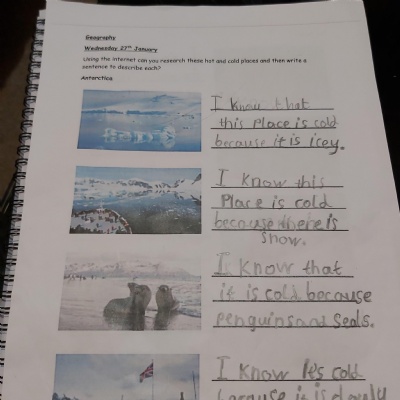 Geography
Wednesday 27th January
Using the internet can you research these hot and cold places and then write a
sentence to describe each?
Antarctica
I know that
this place is cold
because it is icey.
I know this
Place is cold
because there is
snow.
I know that
it is cold because
penguins and seals.
I know it's cold
because it is